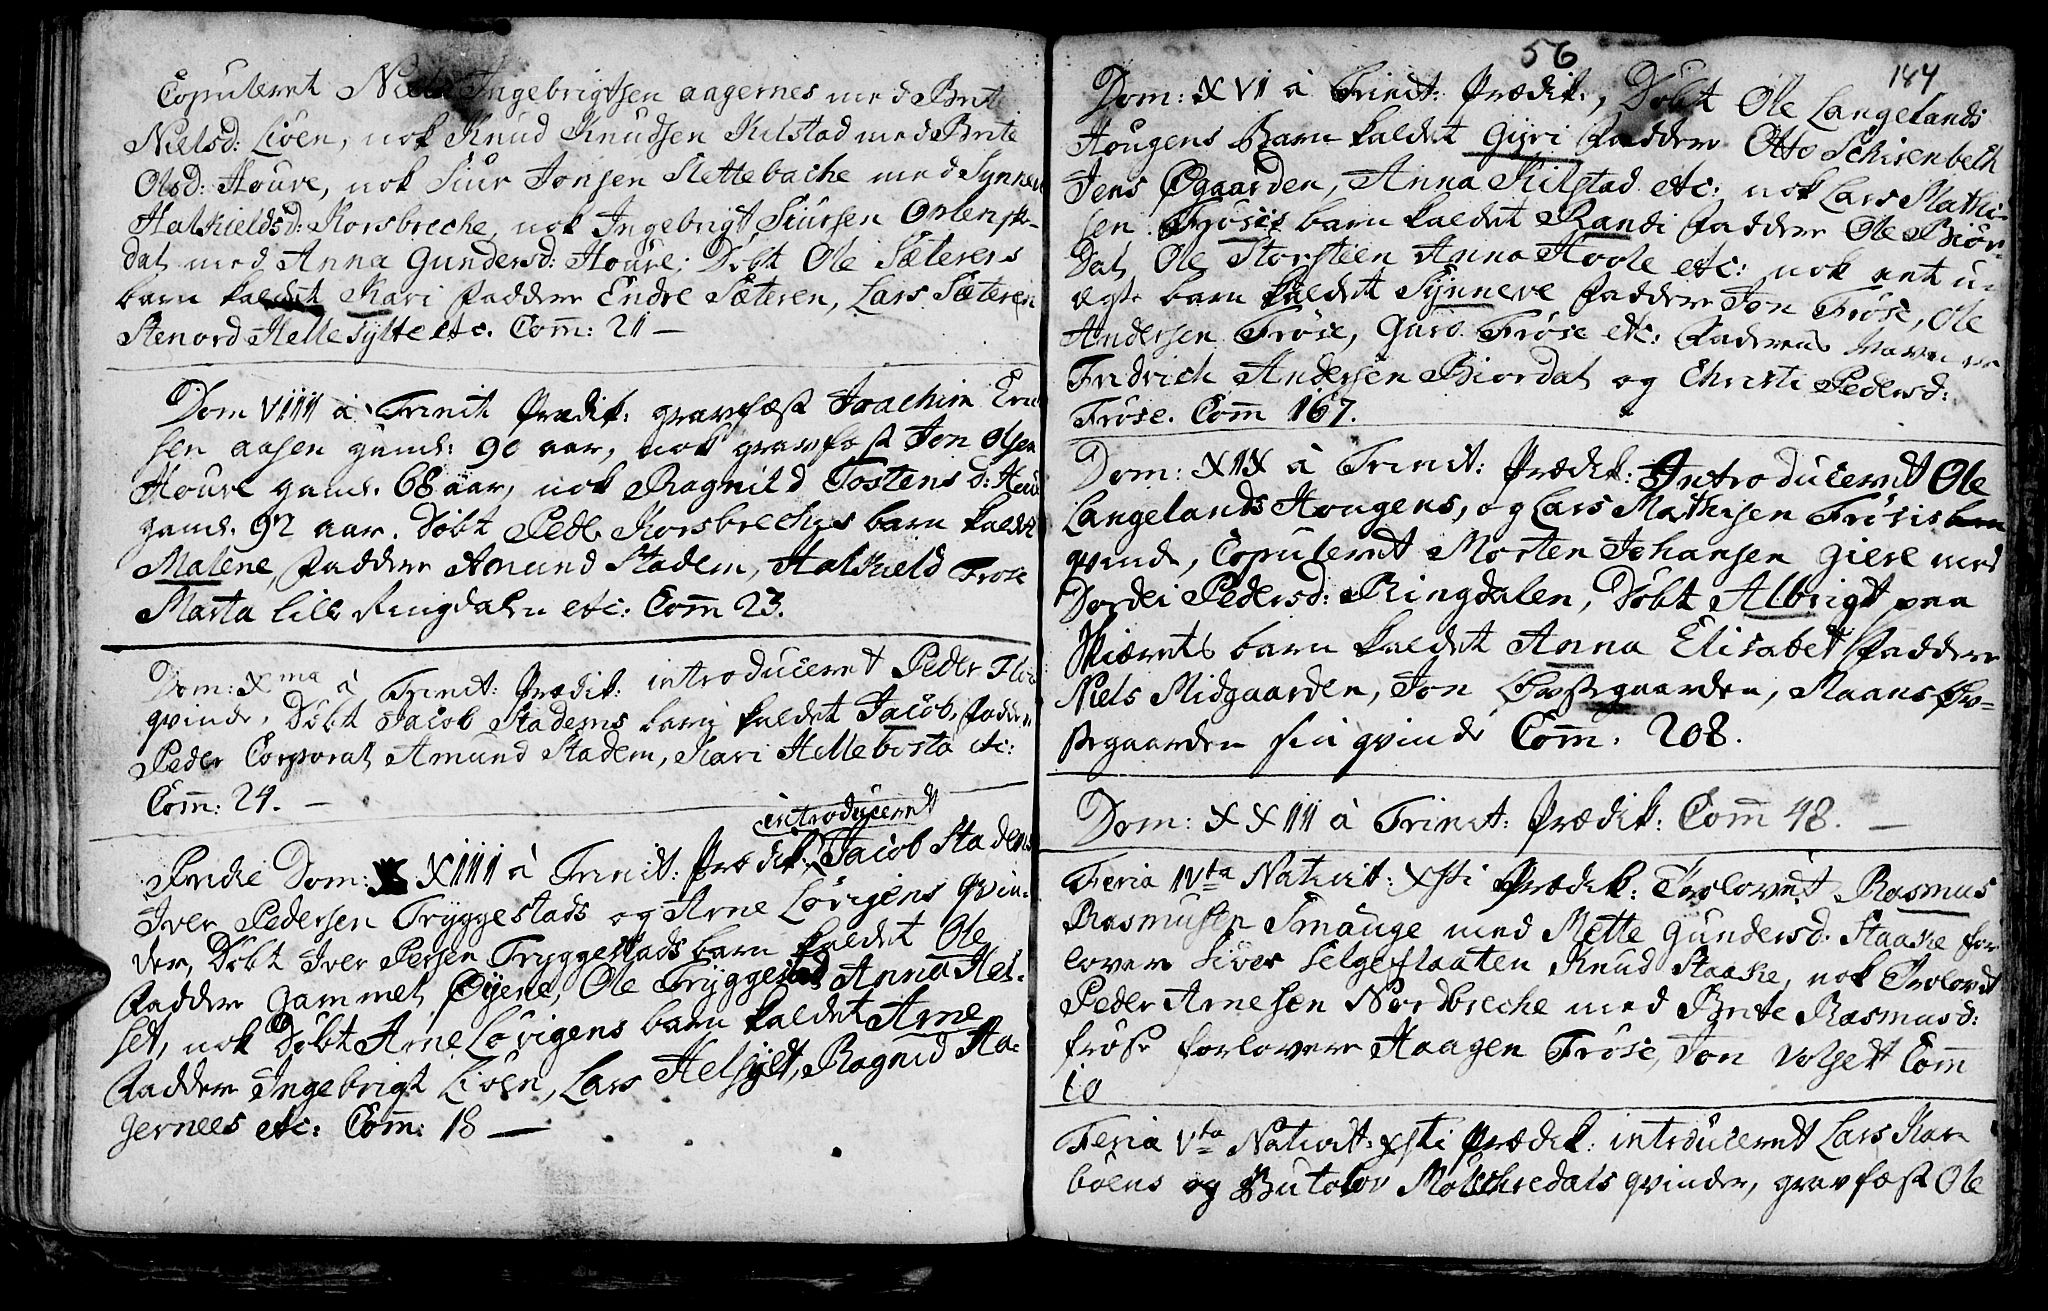 Copuleret Niels Ingebrigtsen aagernes med Brite
Nielsd: Lióen, nok Knud Knudsen Kilstad med Brite
Olsd: Houre, nok Siur Jonsen Slettebache med Synnev
Halkieldsd: Korsbreche, nok Ingebrigt Siursen
dal med Anna Gundersd: Houre; Døbt Ole Sæterens
barn kaldet Kari faddere Endre Sæteren, Lars Sæteren
Stenord Hellesylte etc. Com̄: 21 —
Dom VIIII à Trinit: Prædik: gravfæst Joachim Eric
sen aasen gaml: 90 aar, nok gravfæst Jon Olsen
Houre gaml. 68 aar, nok Ragnild Tostensd: Hou
gaml. 92 aar. Døbt Peder Korsbreches barn kaldet
Malene, faddere Amund Stadem, Halkield Frøse
Marta lille Ringdalen etc: Com̄ 23.
Dom: Xma à Trinit: Prædik: introduceret Peder
qvinde, Døbt Jacob Stadems barn kaldet Jacob, fadder
Peder Corporal Amund Stadem, Kari Hellebosta etc:
Com̄: 24. —
introduceret
Pridie Dom: XIIII à Trinit: Prædik: Jacob Stadems
Iver Pedersen Tryggestads og Arne Løvigens qvin-
der, Døbt Iver Persen Tryggestads barn kaldet Ole
faddere gammel Øyene, Ole Tryggestad Anna Hel-
set, nok Døbt Arne Løvigens barn kaldet Arne
faddere Ingebrigt Lióen, Lars Helsett, Ragnild Aa-
gernees etc: Com̄: 18 —
56
184
Dom: XVI à Trinit: Prædik:, Døbt Ole Langelands
Hougens Barn kaldet Gyri faddere Otto Schisenbech
Jens Øgaarden, Anna Kilstad etc: nok Lars Mathi-
sen Frøsis barn kaldet Randi faddere Ole Biør-
dal, Ole Storsteen Anna Hoole etc: nok et u-
ægte barn kaldet Synneve faddere Jon Frøse, Ole
Andersen Frøse, Guro Frøse etc: Fadrens Navn er
Fridrich Andersen Biordal og Christi Pedersd:
Frøse. Com̄ 167.
Dom: XIX à Trinit: Prædik: Introduceret Ole
Langelands Hougens, og Lars Mathisen Frøsis
qvinde, Copuleret Morten Johansen Giere med
Dordei Pedersd: Ringdalen, Døbt Albrigt paa
Skiærets barn kaldet Anna Elisabet faddere
Niels Midgaarden, Jon Præstgaarden, Maans Præ-
stegaarden sin qvinde Com̄: 208.
Dom: XXIII à Trinit: Prædik: Com̄ 48. —
Feria IVta Nativit: Xsti Prædik: Trolovet Rasmus
Rasmusen Smauge med Mette Gundersd: Staake for
lovere Siver Selgeflaaten Knud Staake, nok Trolovet
Peder Arnesen Nordbreche med Brite Rasmusd:
Frøse forlovere Haagen Frøse, Jon Volset Com̄
10
Feria Vta Nativit: Xsti Prædik: introduceret Lars Kar
bøens og Butolov Mølskredals qvinder, gravfæst Ole